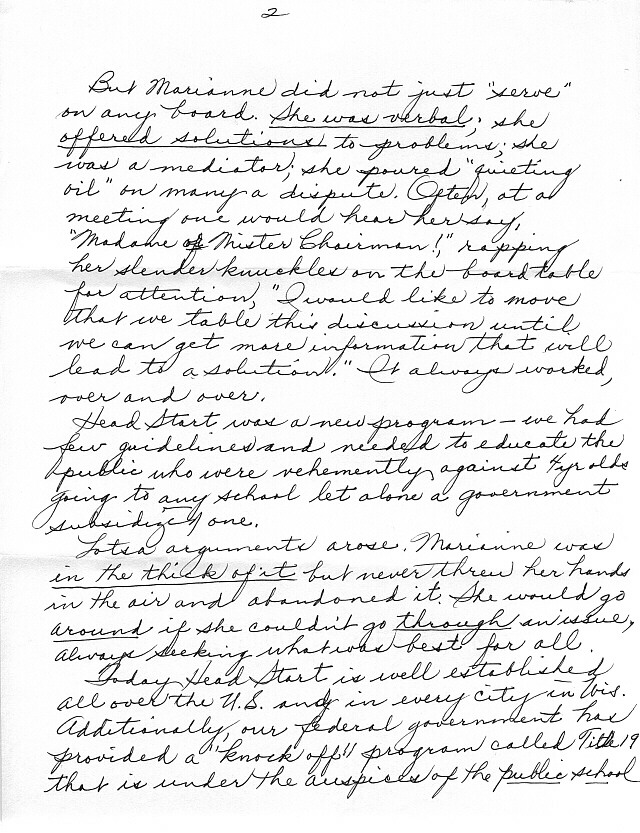 2
But Marianne did not just "serve"
on any board. She was verbal; she
offered solutions to problems; she
was a mediator; she poured "quieting
oil" on many a dispute. Often, at a
meeting one would hear her say,
"Madame or Mister Chairman!," rapping
her slender knuckles on the board table
for attention, "I would like to move
that we table this discussion until
we can get more information that will
lead to a solution." It always worked,
over and over.
Head Start was a new program - we had
few guidelines and needed to educate the
public who were vehemently against 4 yr olds
going to any school let alone a government
subsidized one.
Lotsa arguments arose. Marianne was
in the thick of it but never threw her hands
in the air and abandoned it. She would go
around if she couldn't go through an issue,
always seeking what was best for all.
Today Head Start is well established
all over the U.S. and in every city in Wis.
Additionally, our federal government has
provided a "knock off" program called Title 19
that is under the auspices of the public school